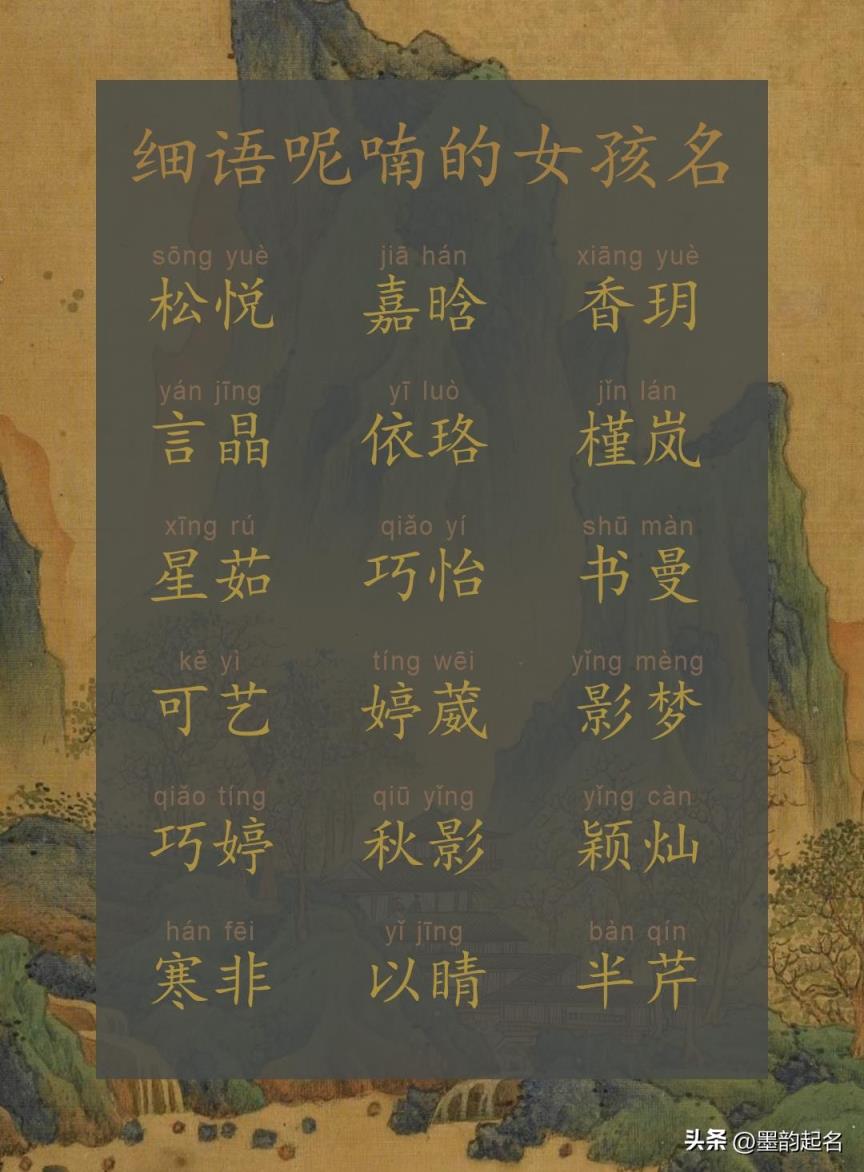 细语呢喃的女孩名
sōng yuè jiā hán xiāng yuè
松悦 嘉晗 香玥
yán jīng yī luò jǐn lán
言晶 依珞 槿岚
xīng rú qiǎo yí shū màn
星茹 巧怡 书曼
kě yì tíng wēi yǐng mèng
可艺 婷葳 影梦
qiǎo tíng qiū yǐng yǐng càn
巧婷 秋影 颖灿
hán fēi yǐ jīng bàn qín
寒非 以晴 半芹
头条 @墨韵起名